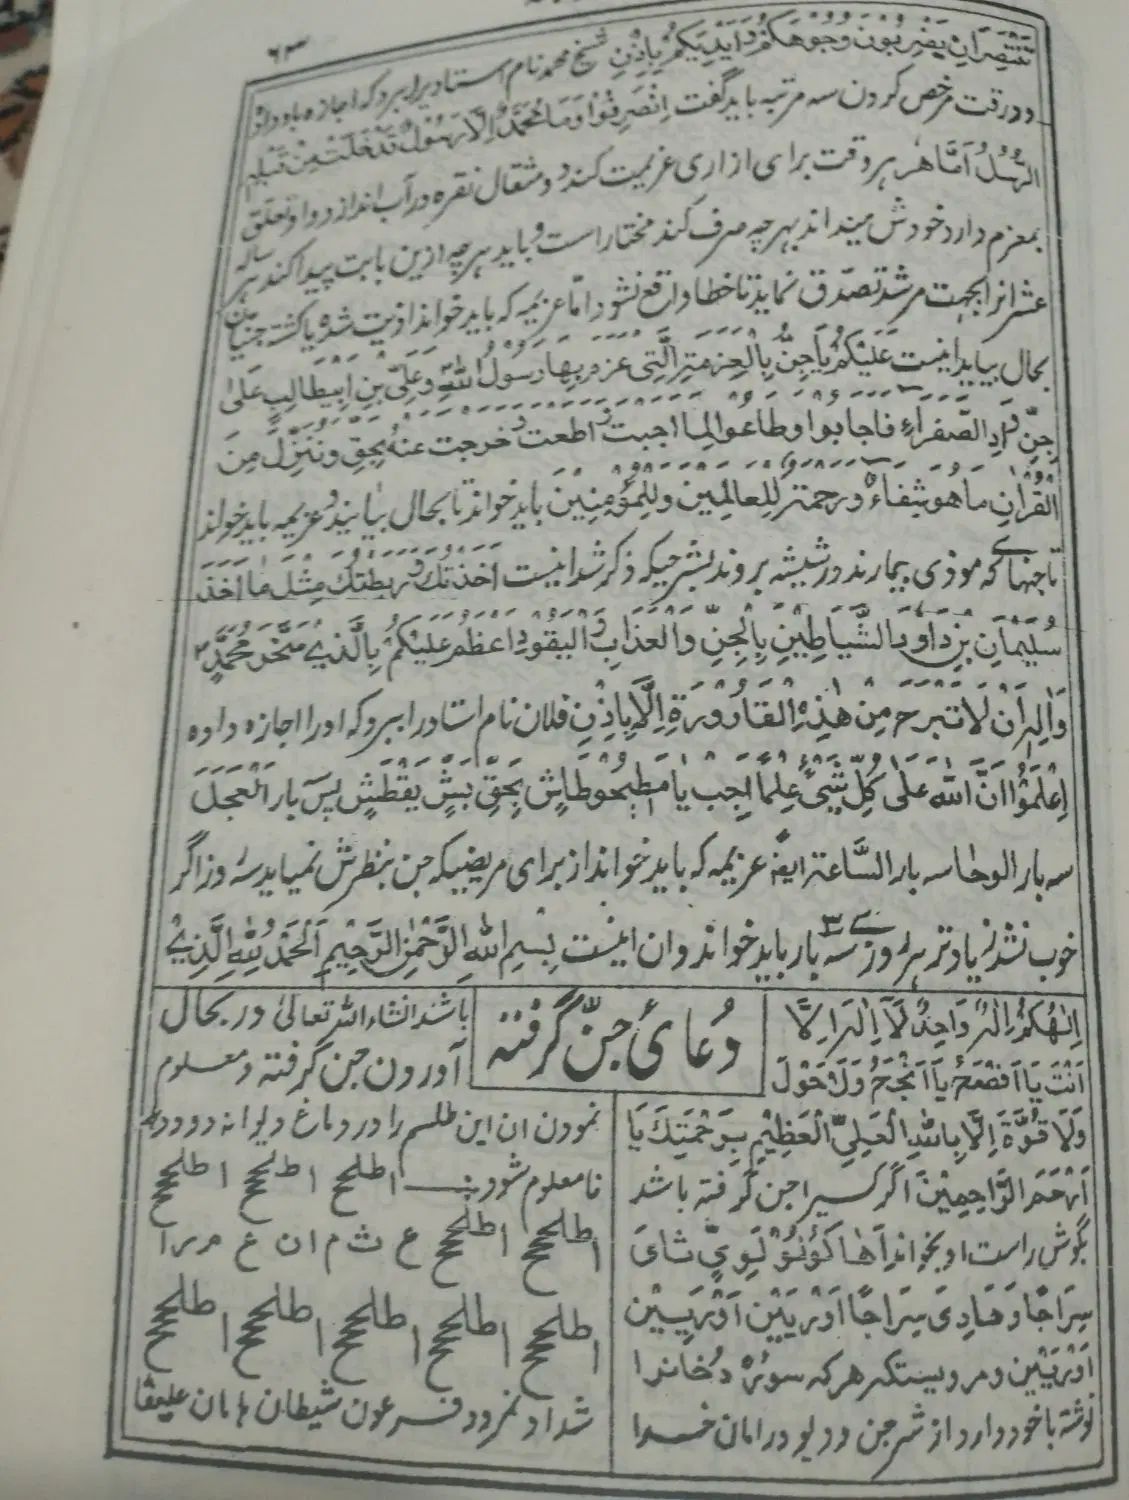 ۶۳
تنتصران یضربون وجوهکم و ایدیکم باذن شیخ محمد نام استاد یرا ببرد که اجازه باو داده
و در وقت مرخص کردن سه مرتبه باید گفت اِنْصَرِفُوْا وَمَا مُحَمَّدٌ اِلَّا رَسُوْلٌ قَدْ خَلَتْ مِنْ قَبْلِهِ
الرُّسُلُ هر وقت برای ازاری عزیمت کند دو مثقال نقره در آب اندازد و او تعلق
بمعزم دارد خودش میداند بهر چه صرف کند مختار است و باید هر چه ازین بابت پیدا کند هر ساله
عشر انرا بجهت مرشد تصدق نماید تا خطا واقع نشود اما عزیمه که باید خواند اذیت شده یا کشته جنیان
بحال بیاید اینست عَلَیْکُمْ یَا جِنُّ بِالْعَزِیْمَةِ الَّتِیْ عزم بِهَا رَسُوْلُ اللهِ وَعَلِیِّ بْنِ اَبِیْطَالِبٍ عَلٰی
جِنِّ وَادِ الصَّفْرَاءِ فاجابوا وطاعوا لما اجبت اطعت وخرجت عنه بِحَقِّ وَنُنَزِّلُ مِنَ
الْقُرْاٰنِ مَا هُوَ شِفَاءٌ وَرَحْمَةٌ لِلْعَالَمِیْنَ وَلِلْمُؤْمِنِیْنَ باید خواند تا بحال بیایند و عزیمه باید خواند
تا جنهائے که موذی بیمارند در شیشه بروند بشرحیکه ذکر شد اینست اَخَذْتُكَ وَرَبَطْتُكَ مِثْلَ مَا اَخَذَ
سُلَیْمَانَ بْنِ دَاوٗدَ الشَّیَاطِیْنِ بِالْجِنِّ وَالْعَذَابِ وَالْیَقُوْدِ اعظم عَلَیْکُمْ بِالَّذِیْ سَخَّرَ مُحَمَّدٍ
وَاٰلِهِ اَنْ لَا تَبْرَحَ مِنْ هٰذِهِ الْقَارُوْرَةِ اِلَّا بِاِذْنِ فلان نام استاد را ببرد که او را اجازه داده
اِعْلَمُوْا اَنَّ اللهَ عَلٰی کُلِّ شَیْءٍ عِلْمًا اَجِبْ یَا بِحَقِّ بَشٍ یَقْطَشٍ پس بار الْعَجَلَ
سه بار الوحا سه بار السَّاعة ایضًا عزیمه که باید خواند از برای مریضیکه جن بنظرش نمیاید سه روز اگر
خوب نشد زیادتر هر روزے ۳ سه بار باید خواند و ان اینست بِسْمِ اللهِ الرَّحْمٰنِ الرَّحِیْمِ اَلْحَمْدُ لِلّٰهِ الَّذِیْ
اِلٰهُکُمْ اِلٰهٌ وَاحِدٌ لَا اِلٰهَ اِلَّا
اَنْتَ یَا یَا وَلَا حَوْلَ
وَلَا قُوَّةَ اِلَّا بِاللهِ الْعَلِیِّ الْعَظِیْمِ بِرَحْمَتِكَ یَا
اَرْحَمَ الرَّاحِمِیْنَ اگر کسیرا جن گرفته باشد
بگوش راست او بخواند
سِرَاجًا وَ هَادِیَ سِرَاجًا
و مرویستکه هر که سورهٔ دخانرا
نوشته با خود دارد از شر جن و دیو در امان خدا
دُعائ جنّ گرفته
باشد انشاء الله تعالیٰ در بحال
آوردن جن گرفته و معلوم
نمودن ان این طلسم را در دماغ دیوانه دود دهد
تا معلوم شود
اطلحح اطلحح اطلحح
اطلحح اطلحح ع ث م ا ن ع م ر ا
اطلحح اطلحح اطلحح اطلحح اطلحح
شداد نمرود فرعون شیطان هامان علیقا